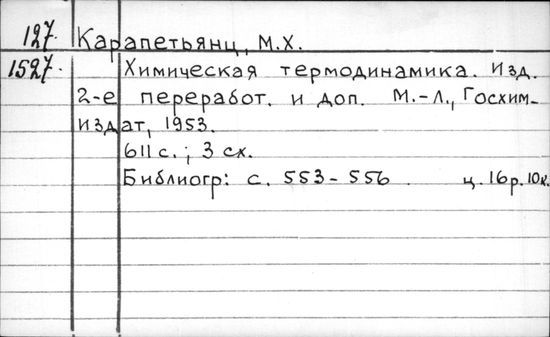 127. Карапетьянц, М.Х.
1527. Химическая термодинамика. Изд.
2-е переработ. и доп. М.-Л., Госхим-
издат, 1953.
611 с.; 3 сх.
Библиогр: с. 553-556. ц. 16р. 10к.